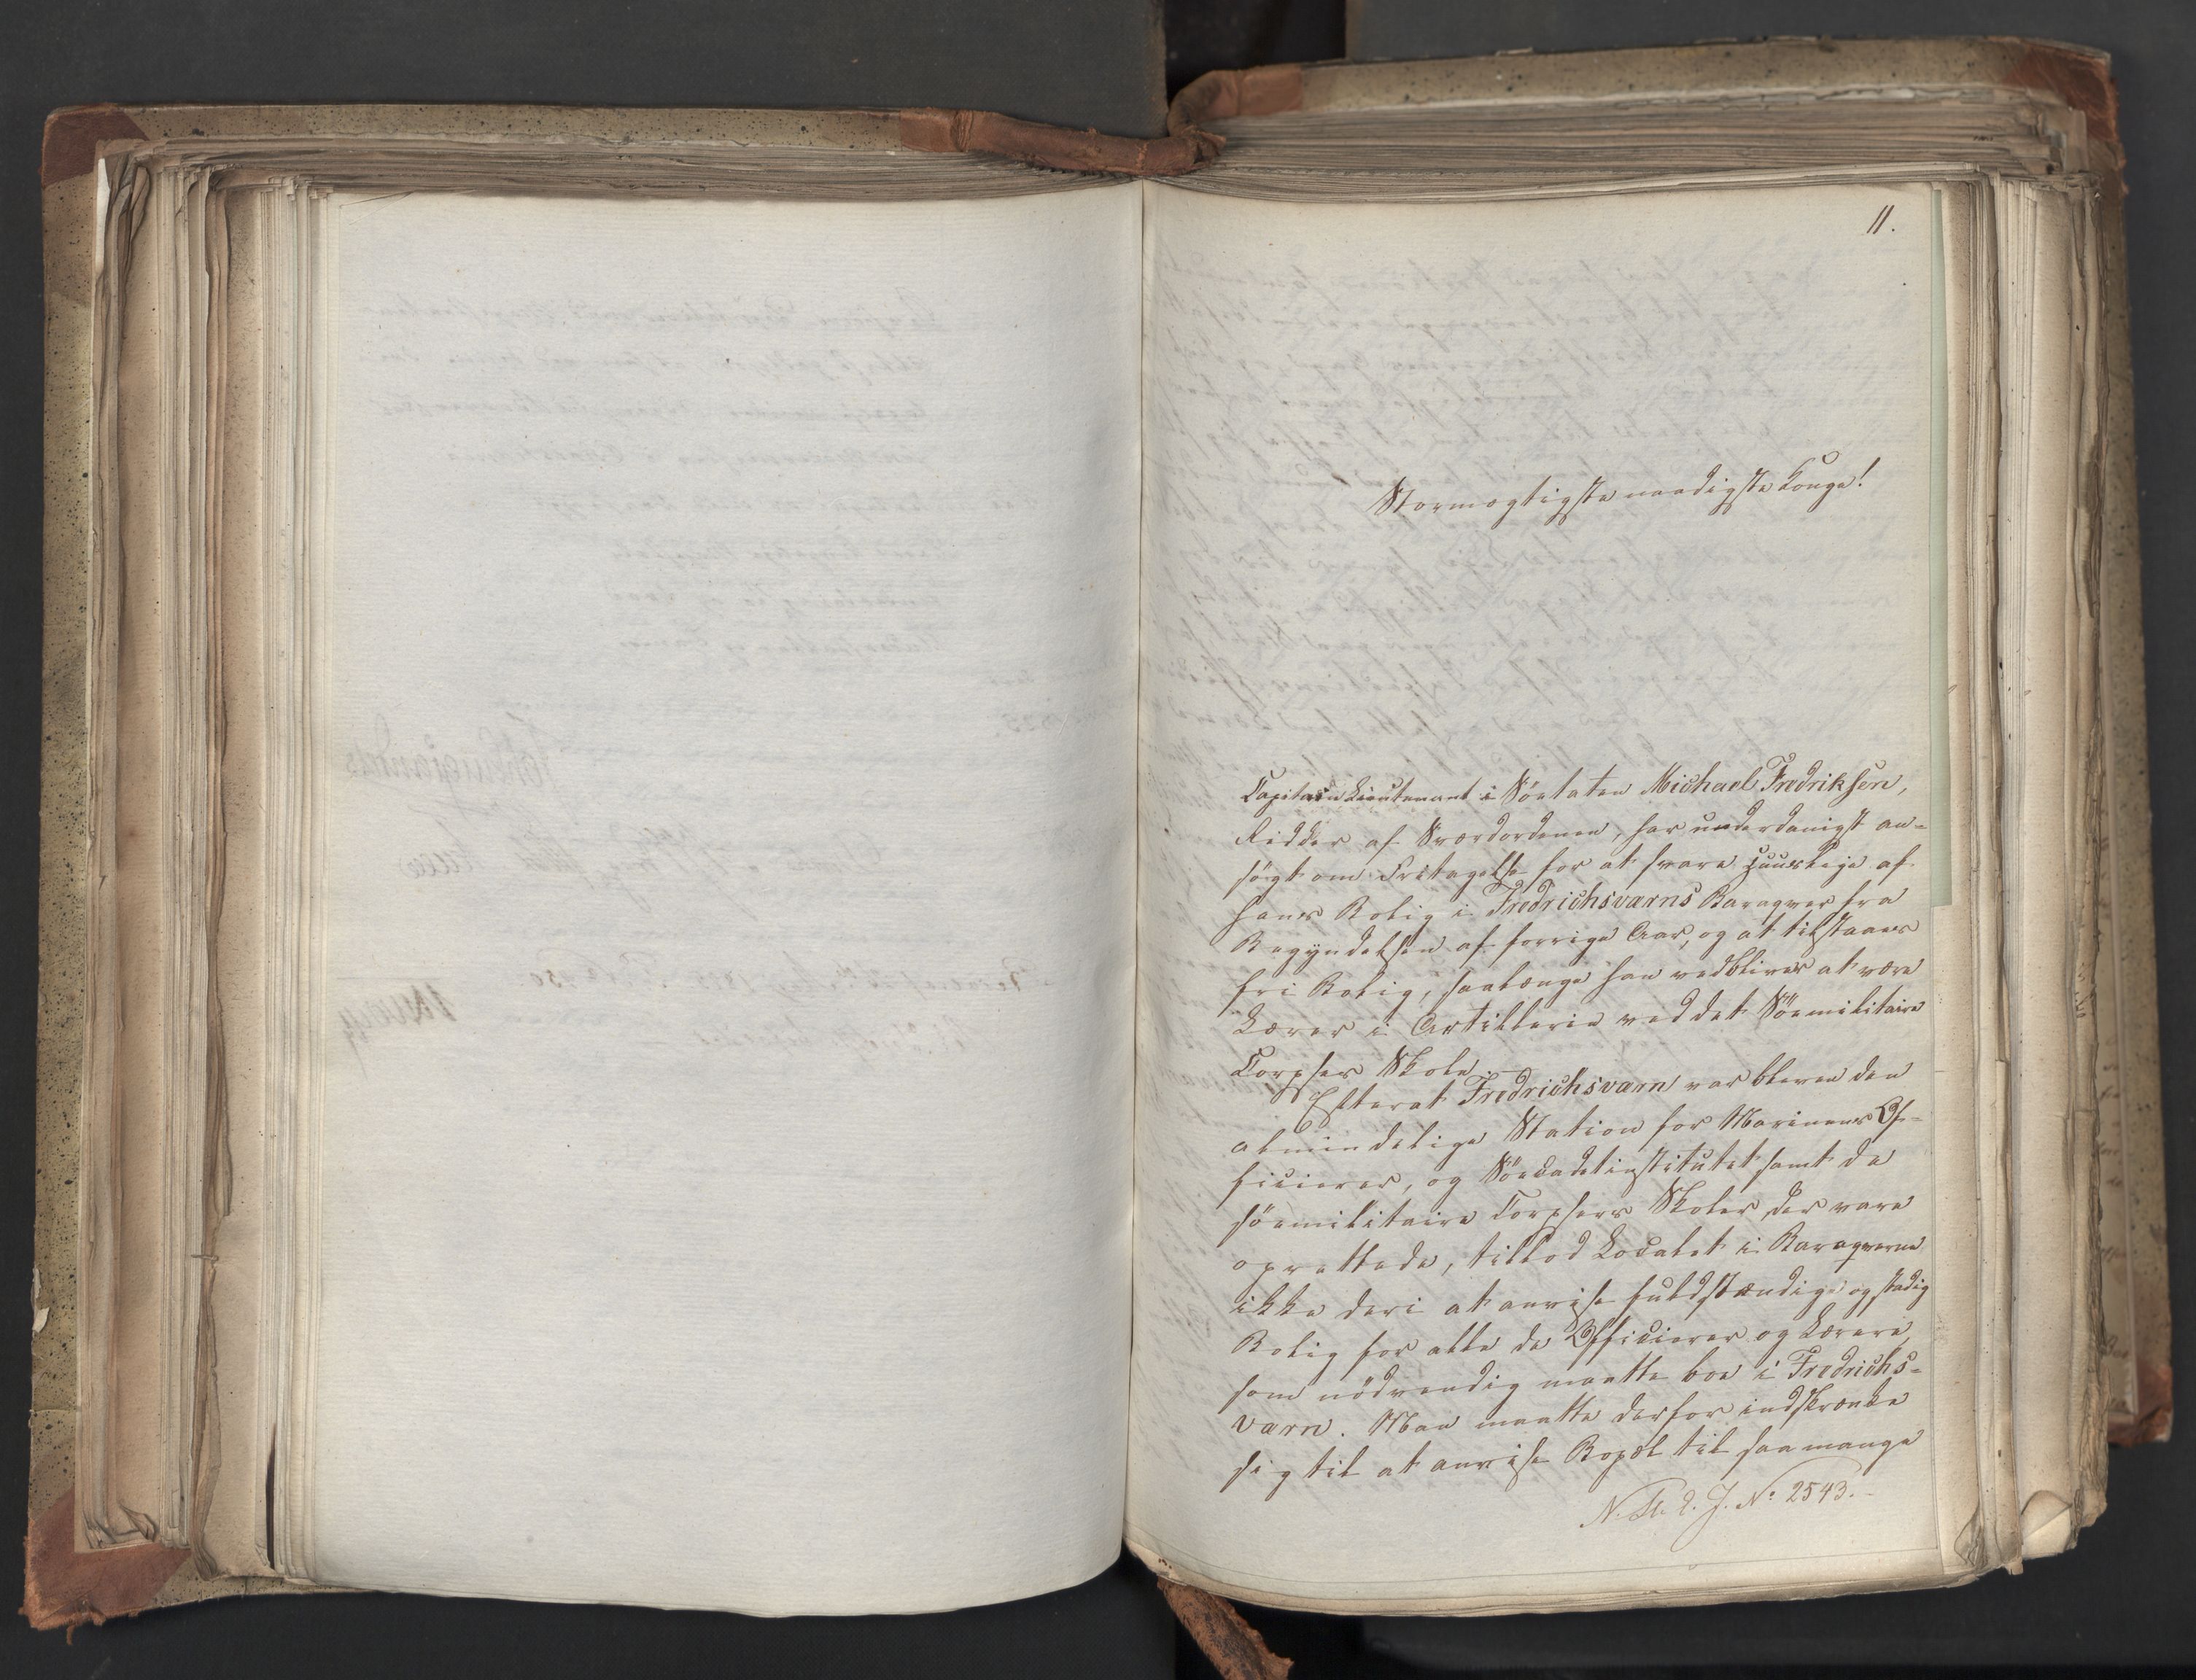 11.
Stormægtigste naadigste Konge!
Capitain Lieutenant i Söetaten Michael Fredriksen,
Ridder af Sværdordenen, har underdanigst an-
sögt om Fritagelse for at svare Huusleje af
hans Bolig i Fredrichsværns Baraqver fra
Begyndelsen af forrige Aar, og at tilstaaes
fri Bolig, saalænge han vedbliver at være
Lærer i Artillerie ved det Söemilitaire
Corpses Skole.
Efterat Fredrichsværn var bleven den
almindelige Station for Marinens Of-
ficierer, og Söecadetinstitutet samt de
söemilitaire Corpsers Skoler der vare
oprettede, tillod Localet i Baraqverne
ikke deri at anvise fuldstændig og stadig
Bolig for alle de Officierer og Lærere,
som nödvendig maatte boe i Fredrichs-
værn. Man maatte derfor indskrænke
sig til at anvise Bopæl til saa mange
No 2543.